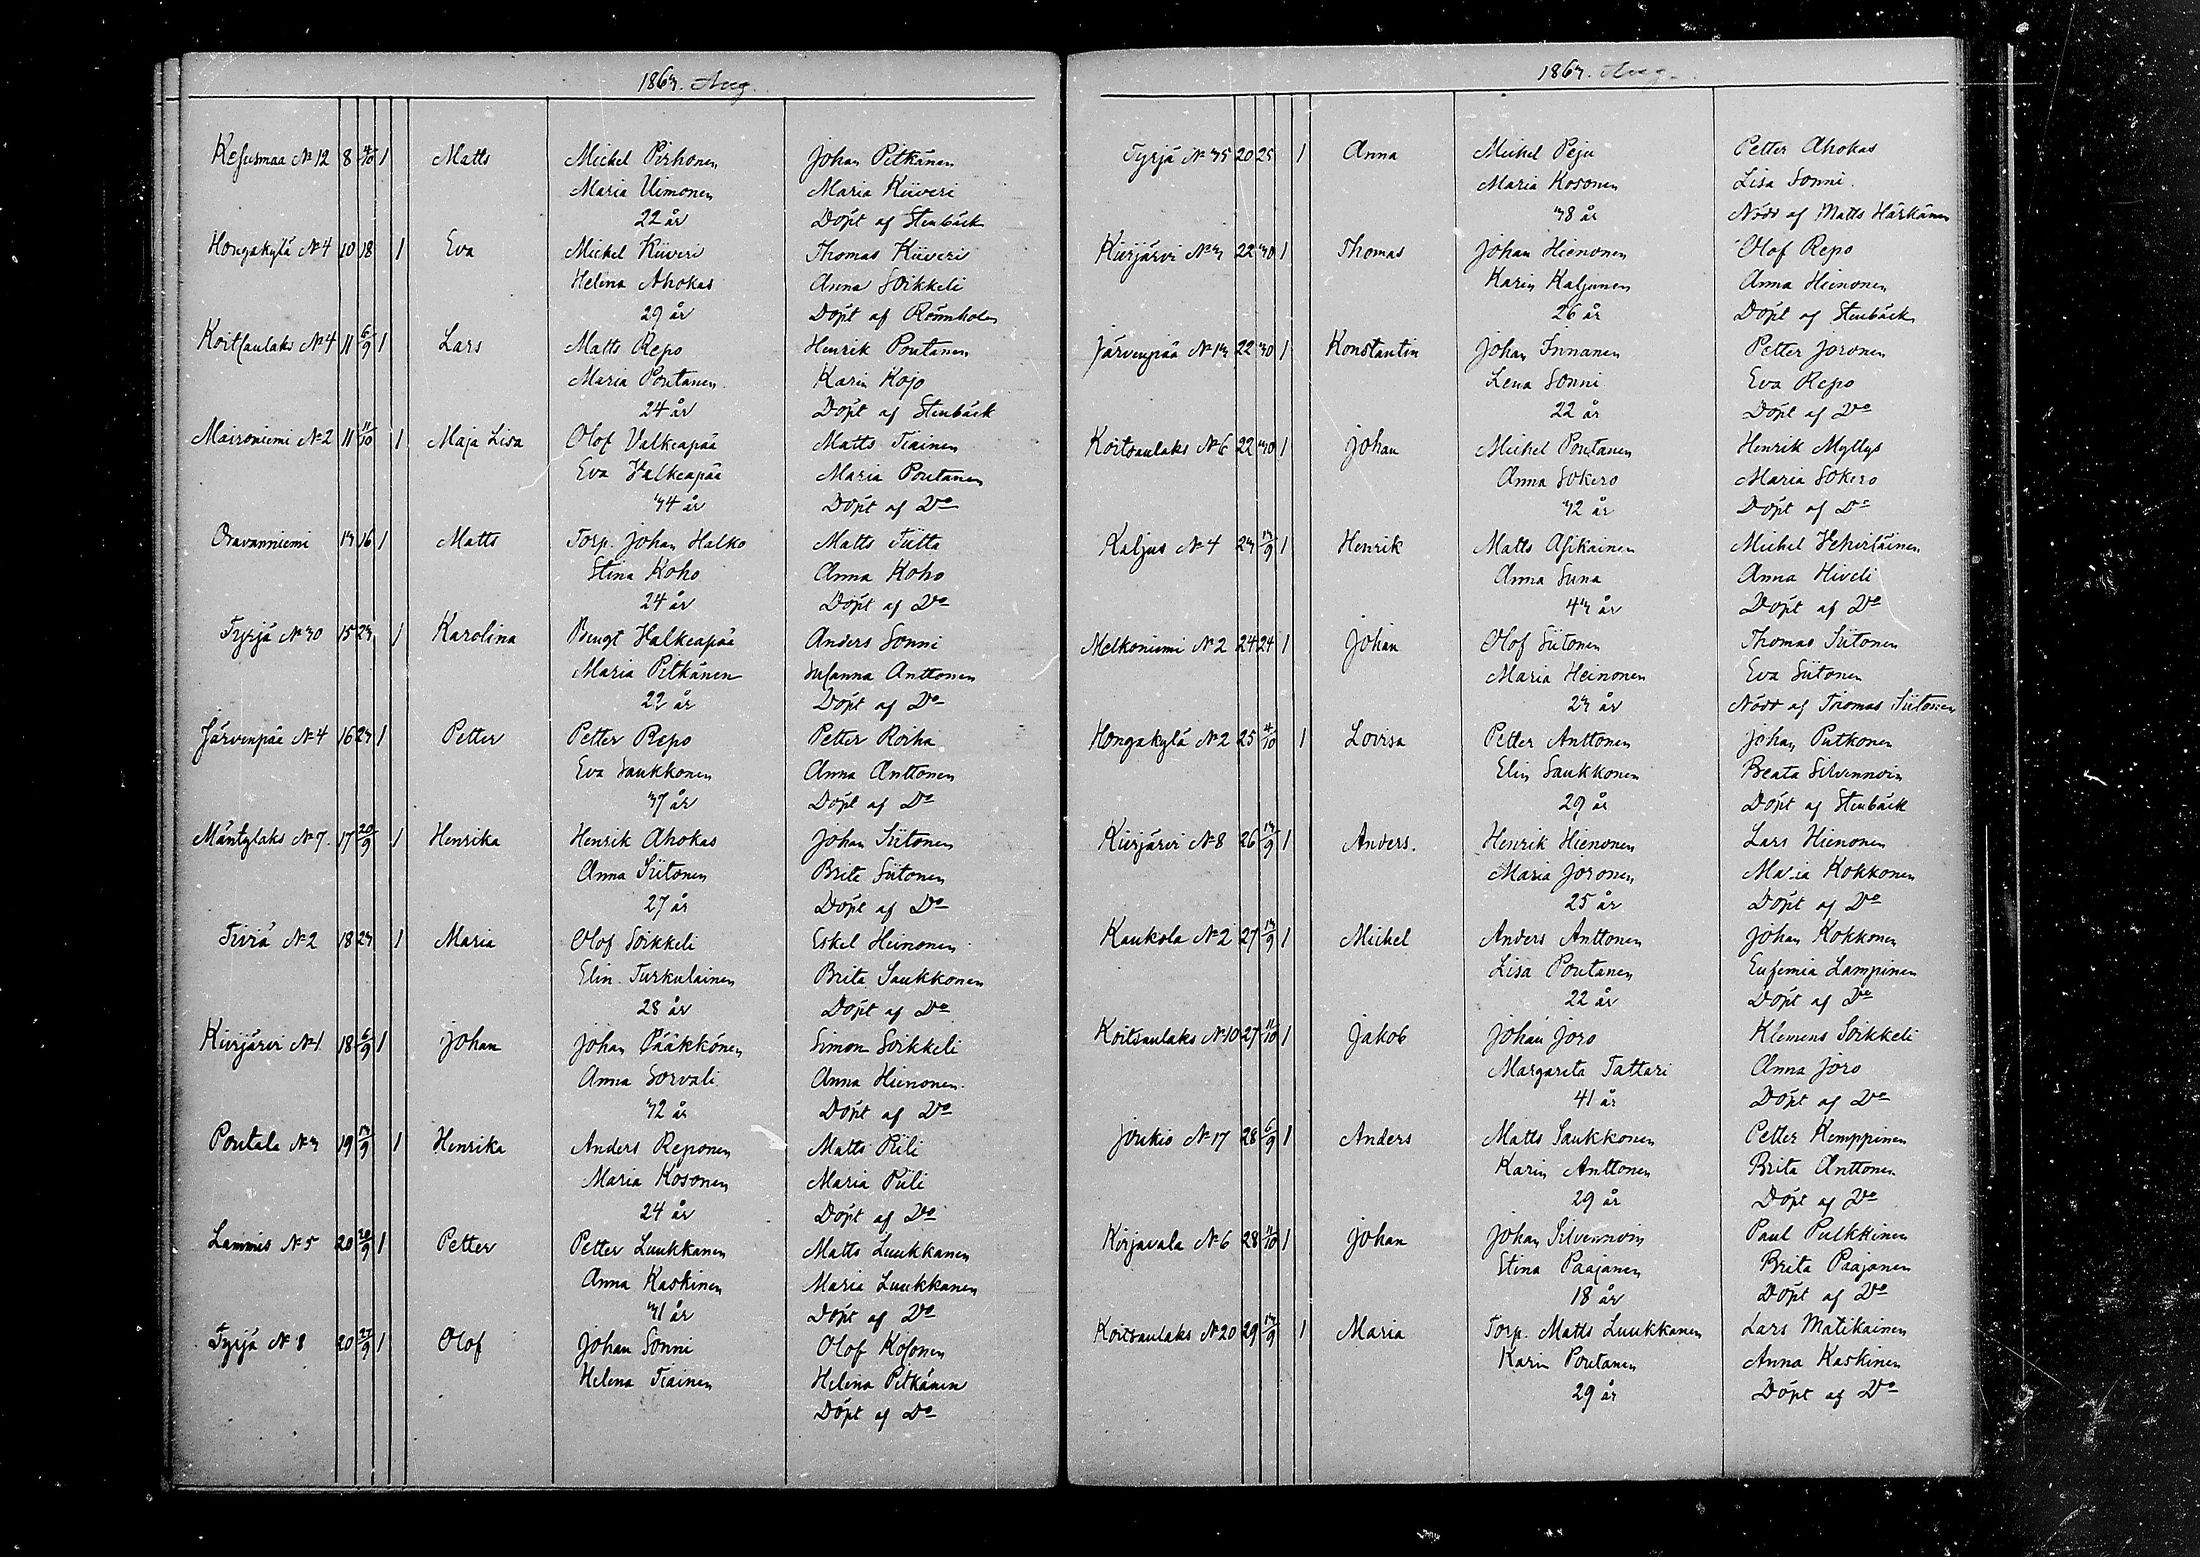 1863. Aug.
Kesusmaa № 12 8 4/10 1 Matts Michel Pirhonen Johan Pitkänen
Maria Uimonen Maria Kiiveri
22 år Döpt af Stenbäck
Hongakylä № 4 10 18 1 Eva Michel Kiiveri Thomas Kiiveri
Helena Ahokas Anna Soikkeli
29 år Döpt af Rönnholm
Koitsanlaks № 4 11 6/9 1 Lars Matts Repo Henrik Poutanen
Maria Poutanen Karin Kojo
24 år Döpt af Stenbäck
Maironiemi № 2 11 11/10 1 Maja Lisa Olof Valkeapää Matts Tiainen
Eva Valkeapää Maria Poutanen
34 år Döpt af Do
Oravanniemi 13 16 1 Matts Torp. Johan Halko Matts Tutta
Stina Koho Anna Koho
24 år Döpt af Do
Tyrjä № 30 15 23 1 Karolina Bengt Valkeapää Anders Sonni
Maria Pitkänen Susanna Anttonen
22 år Döpt af Do
Järvenpää № 4 16 23 1 Petter Petter Repo Petter Roiha
Eva Saukkonen Anna Anttonen
37 år Döpt af Do
Mäntylaks № 7. 17 20/9 1 Henrika Henrik Ahokas Johan Siitonen
Anna Siitonen Brita Siitonen
27 år Döpt af Do
Tiviä № 2 18 23 1 Maria Olof Soikkeli Eskel Heinonen
Elin Turkulainen Brita Saukkonen
28 år Döpt af Do
Kivijärvi № 1 18 6/9 1 Johan Johan Pääkkönen Simon Soikkeli
Anna Sorvali Anna Hienonen
32 år Döpt af Do
Poutala № 3 19 13/9 1 Henrika Anders Reponen Matts Piili
Maria Kosonen Maria Piili
24 år Döpt af Do
Lammis № 5 20 20/9 1 Petter Petter Luukkanen Matts Luukkanen
Anna Kaskinen Maria Luukkanen
31 år Döpt af Do
Tyrjä № 8 20 27/9 1 Olof Johan Sonni Olof Kosonen
Helena Tiainen Helena Pitkänen
Döpt af Do
1863. Aug.
Tyrjä № 35 20 25 1 Anna Michel Peju Petter Ahokas
Maria Kosonen Lisa Sonni
38 år Nödd af Matts Härkänen
Kivijärvi № 3 22 30 1 Thomas Johan Hienonen Olof Repo
Karin Kaljunen Anna Hienonen
26 år Döpt af Stenbäck
Järvenpää № 13 22 30 1 Konstantin Johan Innanen Petter Joronen
Lena Sonni Eva Repo
22 år Döpt af Do
Koitsanlaks № 6 22 30 1 Johan Michel Poutanen Henrik Myllys
Anna Sokero Maria Sokero
32 år Döpt af Do
Kaljus № 4 23 13/9 1 Henrik Matts Asikainen Michel Vehviläinen
Anna Suna Anna Hiveli
43 år Döpt af Do
Melkoniemi № 2 24 24 1 Johan Olof Siitonen Thomas Siitonen
Maria Heinonen Eva Siitonen
23 år Nödd af Thomas Siitonen
Hongakylä № 2 25 4/10 1 Lovisa Petter Anttonen Johan Putkonen
Elin Saukkonen Beata Silvennoin
29 år Döpt af Stenbäck
Kivijärvi № 8 26 13/9 1 Anders. Henrik Hienonen Lars Hienonen
Maria Joronen Maria Kokkonen
25 år Döpt af Do
Kaukola № 2 27 13/9 1 Michel Anders Anttonen Johan Kokkonen
Lisa Poutanen Eufemia Lampinen
22 år Döpt af Do
Koitsanlaks № 10 27 11/10 1 Jakob Johan Joro Klemens Soikkeli
Margareta Tattari Anna Joro
41 år Döpt af Do
Joukio № 17 28 6/9 1 Anders Matts Saukkonen Petter Kemppinen
Karin Anttonen Brita Anttonen
29 år Döpt af Do
Kirjavala № 6 28 11/10 1 Johan Johan Silvennoin Paul Pulkkinen
Stina Paajanen Brita Paajanen
18 år Döpt af Do
Koitsanlaks № 20 29 13/9 1 Maria Torp. Matts Luukkanen Lars Matikainen
Karin Poutanen Anna Kaskinen
29 år Döpt af Do